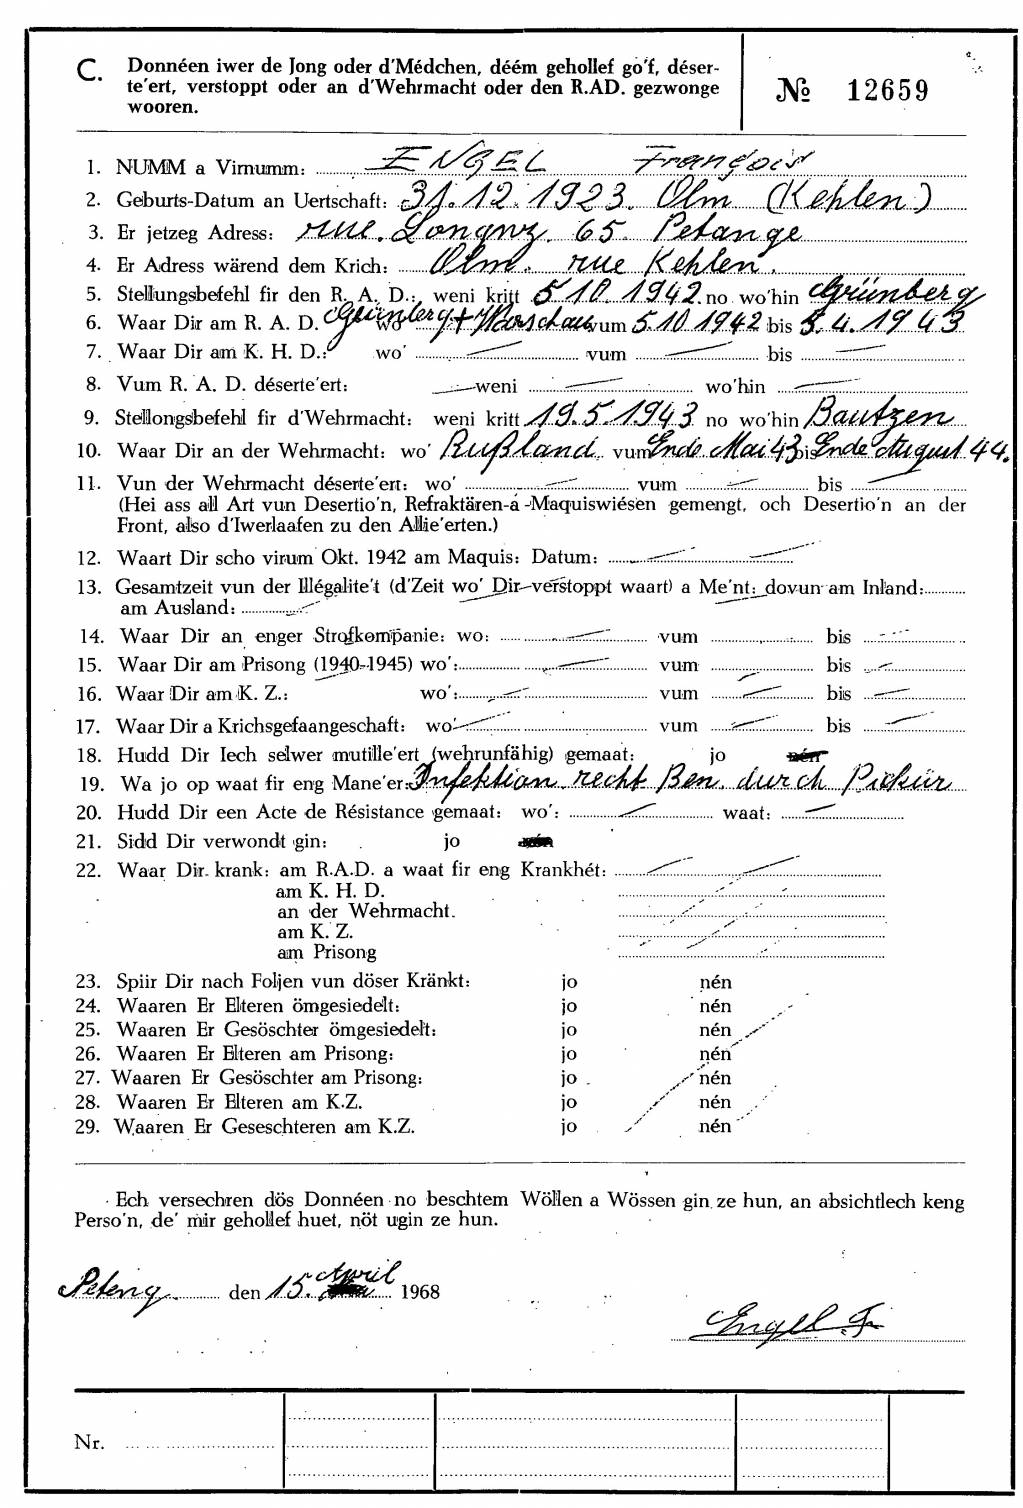 C. Donnéen iwer de Jong oder d'Médchen, déém gehollef go'f, déser-
te'ert, verstoppt oder an d'Wehrmacht oder den R.AD. gezwonge
wooren.
№ 12659
1. NUMM a Virnumm: ENGEL François
2. Geburts-Datum an Uertschaft: 31.12.1923. Olm (Kehlen)
3. Er jetzeg Adress: rue. Longwy. 65. Petange
4. Er Adress wärend dem Krich: Olm. rue Kehlen.
5. Stellungsbefehl fir den R. A. D.: weni kritt 5 10. 1942. no wo'hin Grünberg
6. Waar Dir am R. A. D. wo' Grünberg + Warschau vum 5.10.1942 bis 5.4.1943
7. Waar Dir am K. H. D.: wo' vum bis
8. Vum R. A. D. déserte'ert: weni wo'hin
9. Stellongsbefehl fir d'Wehrmacht: weni kritt 19.5.1943 no wo'hin Bautzen
10. Waar Dir an der Wehrmacht: wo' Rußland vum Ende Mai 43 bis Ende August 44.
11. Vun der Wehrmacht déserte'ert: wo' vum bis
(Hei ass all Art vun Desertio'n, Refraktären-a -Maquiswiésen gemengt, och Desertio'n an der
Front, also d'Iwerlaafen zu den Allie'erten.)
12. Waart Dir scho virum Okt. 1942 am Maquis: Datum:
13. Gesamtzeit vun der Illégalite't (d'Zeit wo' Dir verstoppt waart) a Me'nt: dovun am Inland:
am Ausland:
14. Waar Dir an enger Strofkompanie: wo: vum bis
15. Waar Dir am Prisong (1940-1945) wo': vum bis
16. Waar Dir am K. Z.: wo': vum bis
17. Waar Dir a Krichsgefaangeschaft: wo' vum bis
18. Hudd Dir Iech selwer mutille'ert (wehrunfähig) gemaat: jo nén
19. Wa jo op waat fir eng Mane'er: Infektion recht Ben. durch Pickür
20. Hudd Dir een Acte de Résistance gemaat: wo': waat:
21. Sidd Dir verwondt gin: jo nén
22. Waar Dir krank: am R.A.D. a waat fir eng Krankhét:
am K. H. D.
an der Wehrmacht.
am K. Z.
am Prisong
23. Spiir Dir nach Foljen vun döser Kränkt: jo nén
24. Waaren Er Elteren ömgesiedelt: jo nén
25. Waaren Er Gesöschter ömgesiedelt: jo nén
26. Waaren Er Elteren am Prisong: jo nén
27. Waaren Er Gesöschter am Prisong: jo nén
28. Waaren Er Elteren am K.Z. jo nén
29. Waaren Er Geseschteren am K.Z. jo nén
Ech versechren dös Donnéen no beschtem Wöllen a Wössen gin ze hun, an absichtlech keng
Perso'n, de' mir gehollef huet, nöt ugin ze hun.
Peteng den 15. April 1968
Engel F.
Nr.